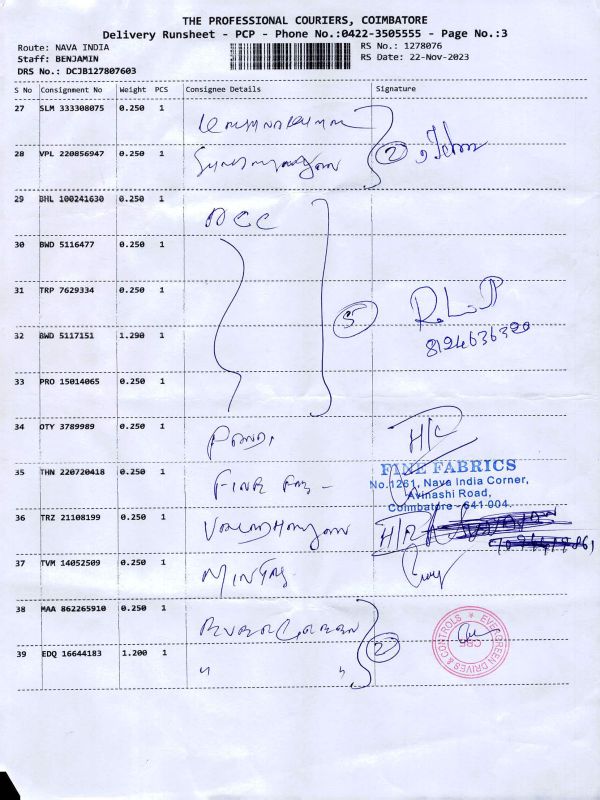 THE PROFESSIONAL COURIERS, COIMBATORE
Delivery Runsheet - PCP - Phone No.:0422-3505555 - Page No.:3
Route: NAVA INDIA RS No.: 1278076
Staff: BENJAMIN RS Date: 22-Nov-2023
DRS No.: DCJB127807603
S No Consignment No Weight PCS Consignee Details Signature
27 SLM 333308075 0.250 1
28 VPL 220856947 0.250 1 2
29 BHL 100241630 0.250 1 ACC
30 BWD 5116477 0.250 1
31 TRP 7629334 0.250 1 5 R.L.P
32 BWD 5117151 1.290 1 8124636320
33 PRO 15014065 0.250 1
34 OTY 3789989 0.250 1 H/C
35 THN 220720418 0.250 1 FINE FAB - FINE FABRICS
No.1261, Nava India Corner,
Avinashi Road,
Coimbatore - 641 004.
36 TRZ 21108199 0.250 1
37 TVM 14052509 0.250 1
38 MAA 862265910 0.250 1 EVERGREEN DRIVES & CONTROLS
CBE
39 EDQ 16644183 1.200 1 " " 2